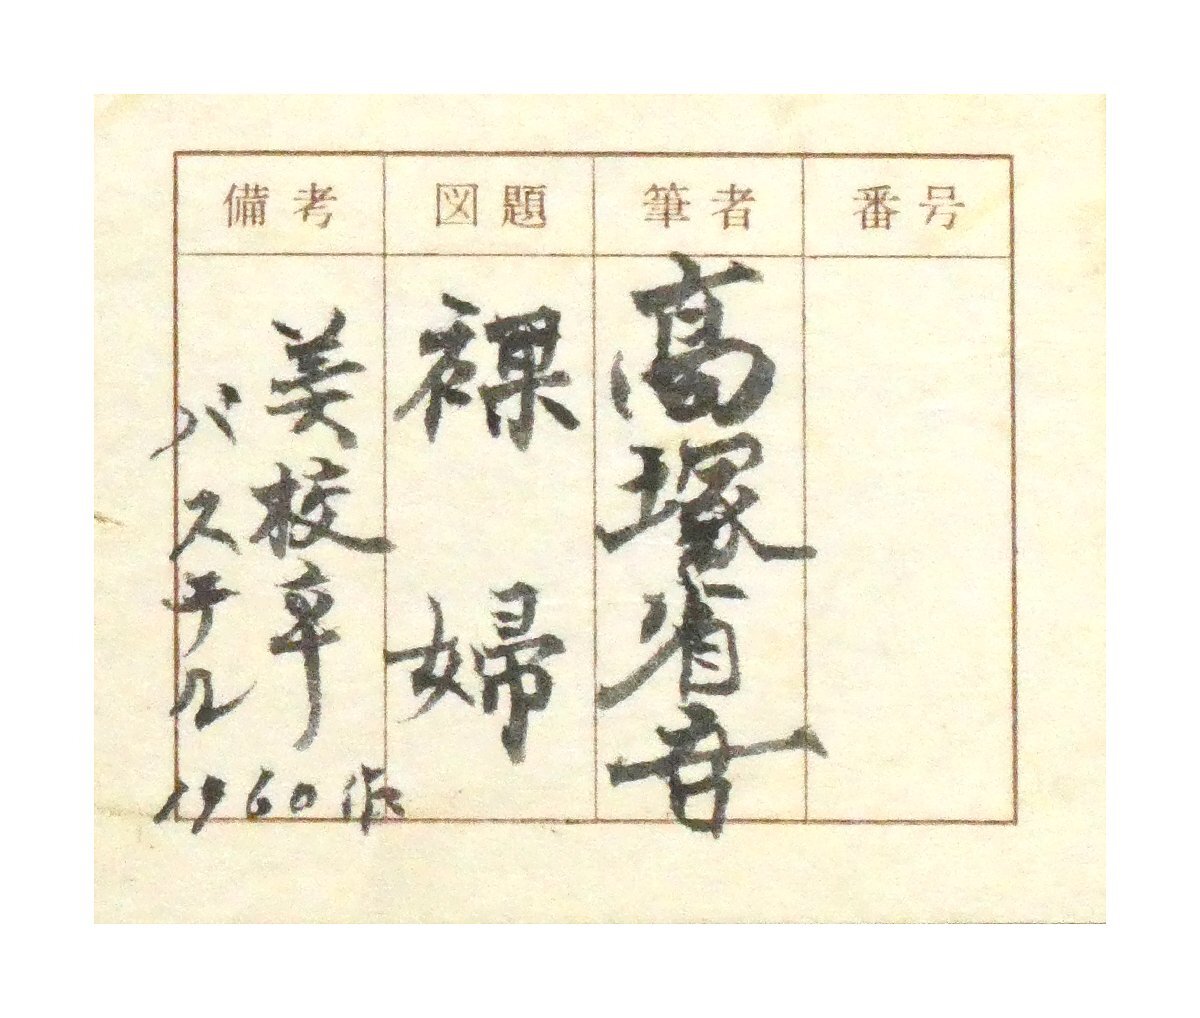 番号
筆者
高塚省吾
図題
裸婦
備考
美校卒
パステル
1960作